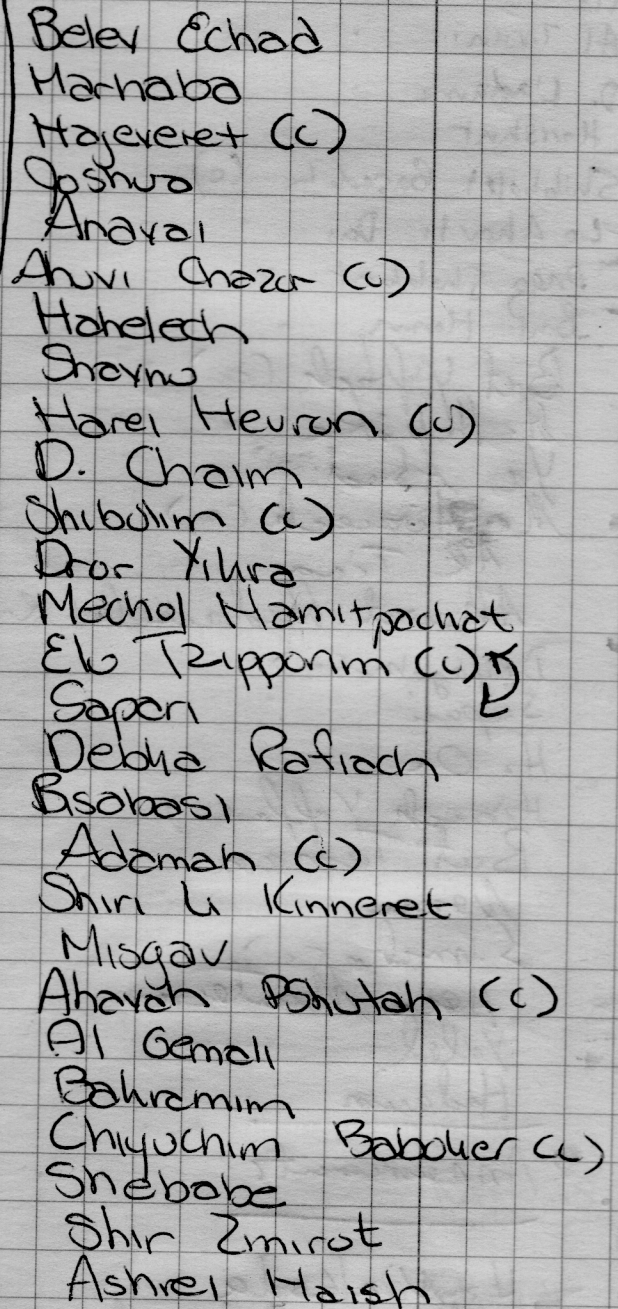 Belev Echad
Marhaba
Hageveret (C)
Joshua
Anavai
Ahuvi Chazor (C)
Hahelech
Shaynu
Harei Hevron (C)
D. Chaim
Shibolim (C)
Dror Yikra
Mechol Hamitpachat
Elu Tzipporim (C)
Sapari
Debka Rafiach
Bisobasi
Adamah (C)
Shiri Li Kinneret
Misgav
Ahavah Pshutah (C)
Al Gemali
Bakramim
Chiyuchim Baboker (C)
Shebabe
Shir Zmirot
Ashrei Haish